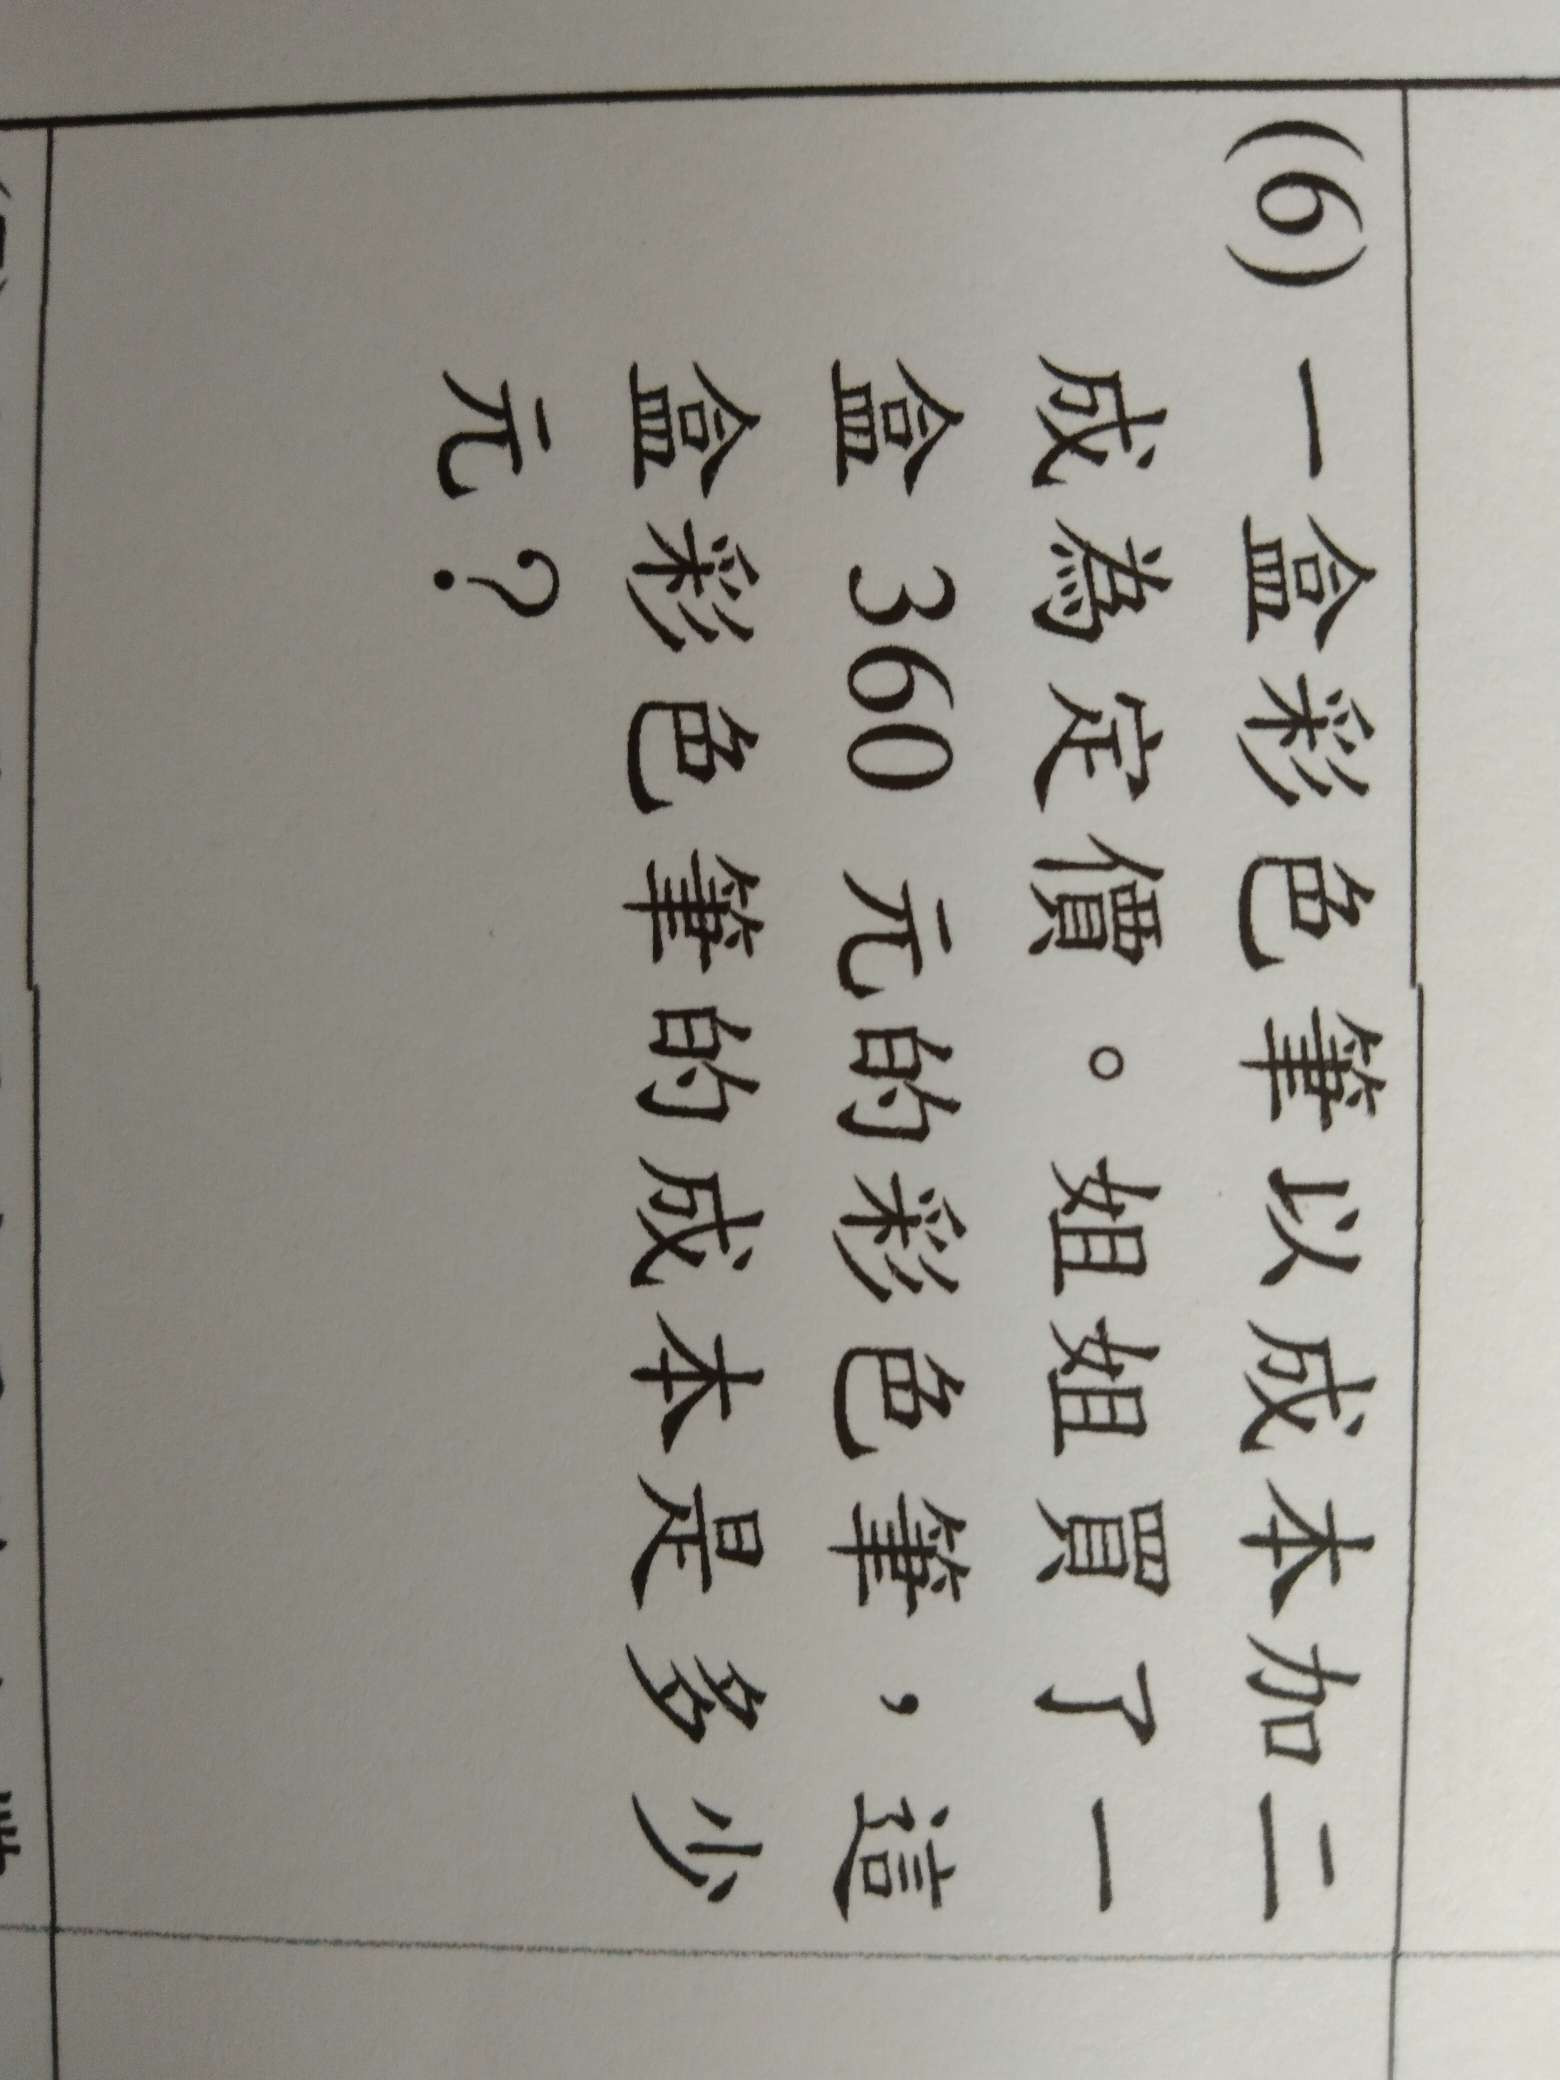 (6) 一盒彩色筆以成本加二
成為定價。姐姐買了一
盒 360 元的彩色筆，這
盒彩色筆的成本是多少
元？